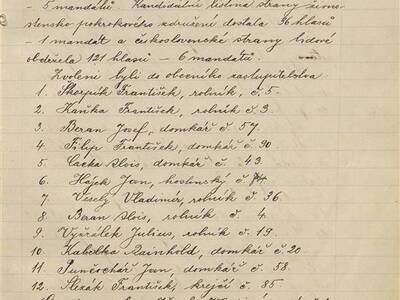 – 5 mandátů. Kandidátní listina strany živno-
stensko-pokrokového sdružení dostala 36 hlasů
– 1 mandát a československé strany lidové
obdržela 121 hlasů – 6 mandátů.
Zvoleni byli do obecního zastupitelstva
1. Skorpík František, rolník, č. 5.
2. Kaňka František, rolník č. 3.
3. Beran Josef, domkář č. 57.
4. Filip František, domkář č. 90
5. Cacka Alois, domkář č. 43.
6. Hájek Jan, hostinský č. 74.
7. Veselý Vladimír, rolník č. 36.
8. Beran Alois, rolník č. 4.
9. Vyšrálek Julius, rolník č. 19.
10. Kabelka Rainhold, domkář č. 20
11. Punčochář Jan, domkář č. 58.
12. Slezák František, krejčí č. 85